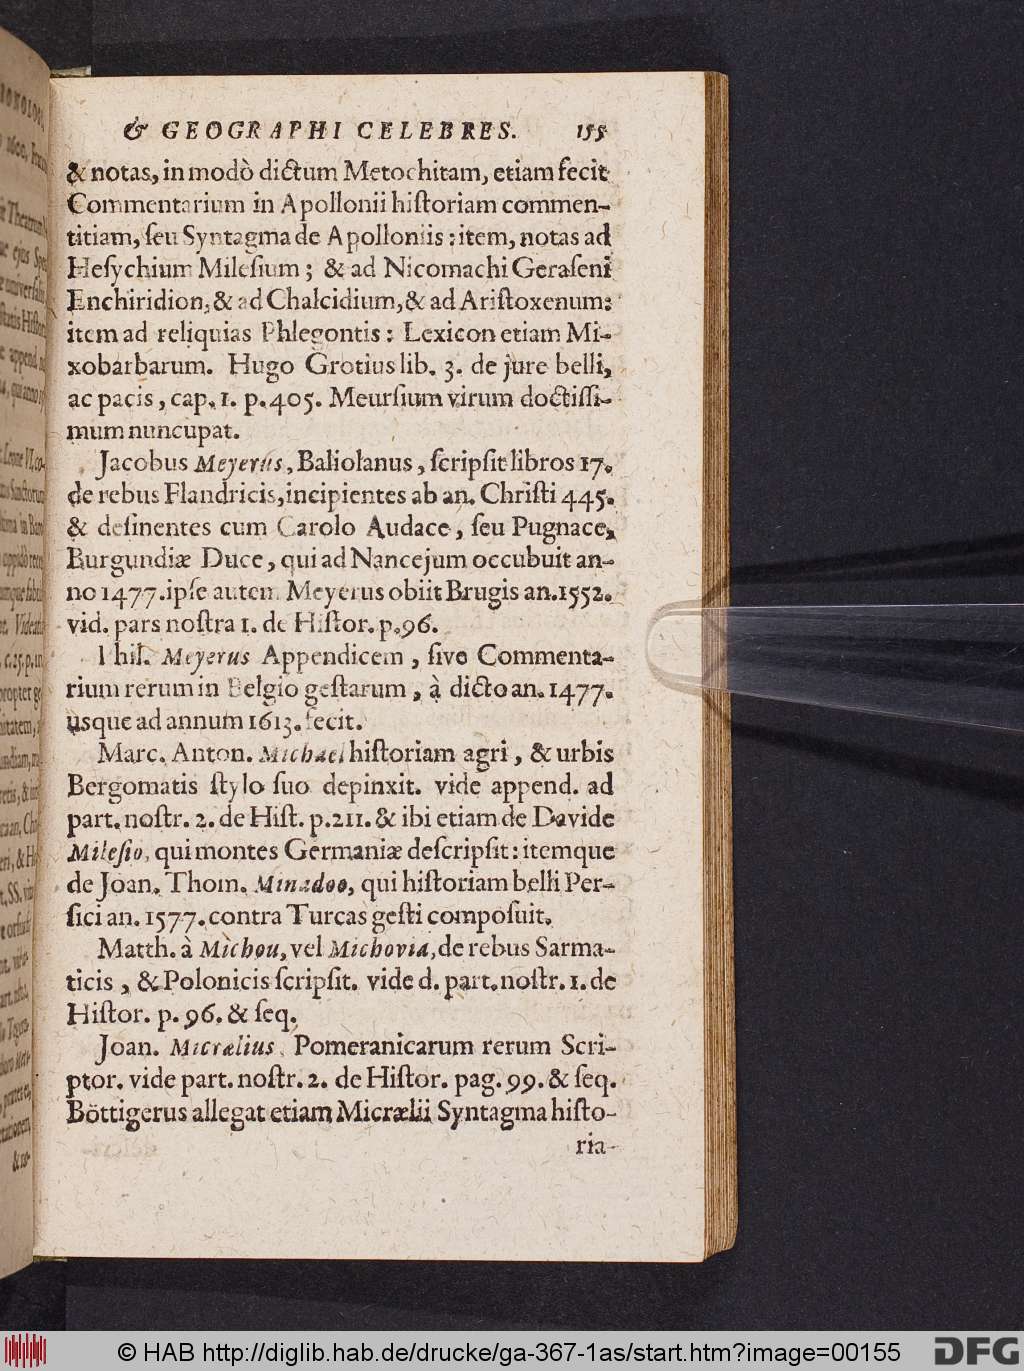 & GEOGRAPHI CELEBRES. 155
& notas, in modò dictum Metochitam, etiam fecit
Commentarium in Apollonii hiſtoriam commen-
titiam, ſeu Syntagma de Apolloniis: item, notas ad
Heſychium Mileſium; & ad Nicomachi Geraſeni
Enchiridion, & ad Chalcidium, & ad Ariſtoxenum:
item ad reliquias Phlegontis: Lexicon etiam Mi-
xobarbarum. Hugo Grotius lib. 3. de jure belli,
ac pacis, cap. 1. p. 405. Meurſium virum doctiſſi-
mum nuncupat.
Jacobus Meyerus, Baliolanus, ſcripſit libros 17.
de rebus Flandricis, incipientes ab an. Chriſti 445.
& deſinentes cum Carolo Audace, ſeu Pugnace,
Burgundiæ Duce, qui ad Nancejum occubuit an-
no 1477. ipſe autem Meyerus obiit Brugis an. 1552.
vid. pars noſtra 1. de Hiſtor. p. 96.
Phil. Meyerus Appendicem, ſive Commenta-
rium rerum in Belgio geſtarum, à dicto an. 1477.
uſque ad annum 1613. fecit.
Marc. Anton. Michael hiſtoriam agri, & urbis
Bergomatis ſtylo ſuo depinxit. vide append. ad
part. noſtr. 2. de Hiſt. p. 211. & ibi etiam de Davide
Mileſio, qui montes Germaniæ deſcripſit: itemque
de Joan. Thom. Minadoo, qui hiſtoriam belli Per-
ſici an. 1577. contra Turcas geſti compoſuit.
Matth. à Michou, vel Michovia, de rebus Sarma-
ticis, & Polonicis ſcripſit. vide d. part. noſtr. 1. de
Hiſtor. p. 96. & ſeq.
Joan. Micrælius, Pomeranicarum rerum Scri-
ptor. vide part. noſtr. 2. de Hiſtor. pag. 99. & ſeq.
Böttigerus allegat etiam Micrælii Syntagma hiſto-
ria-
© HAB http://diglib.hab.de/drucke/ga-367-1as/start.htm?image=00155
DFG